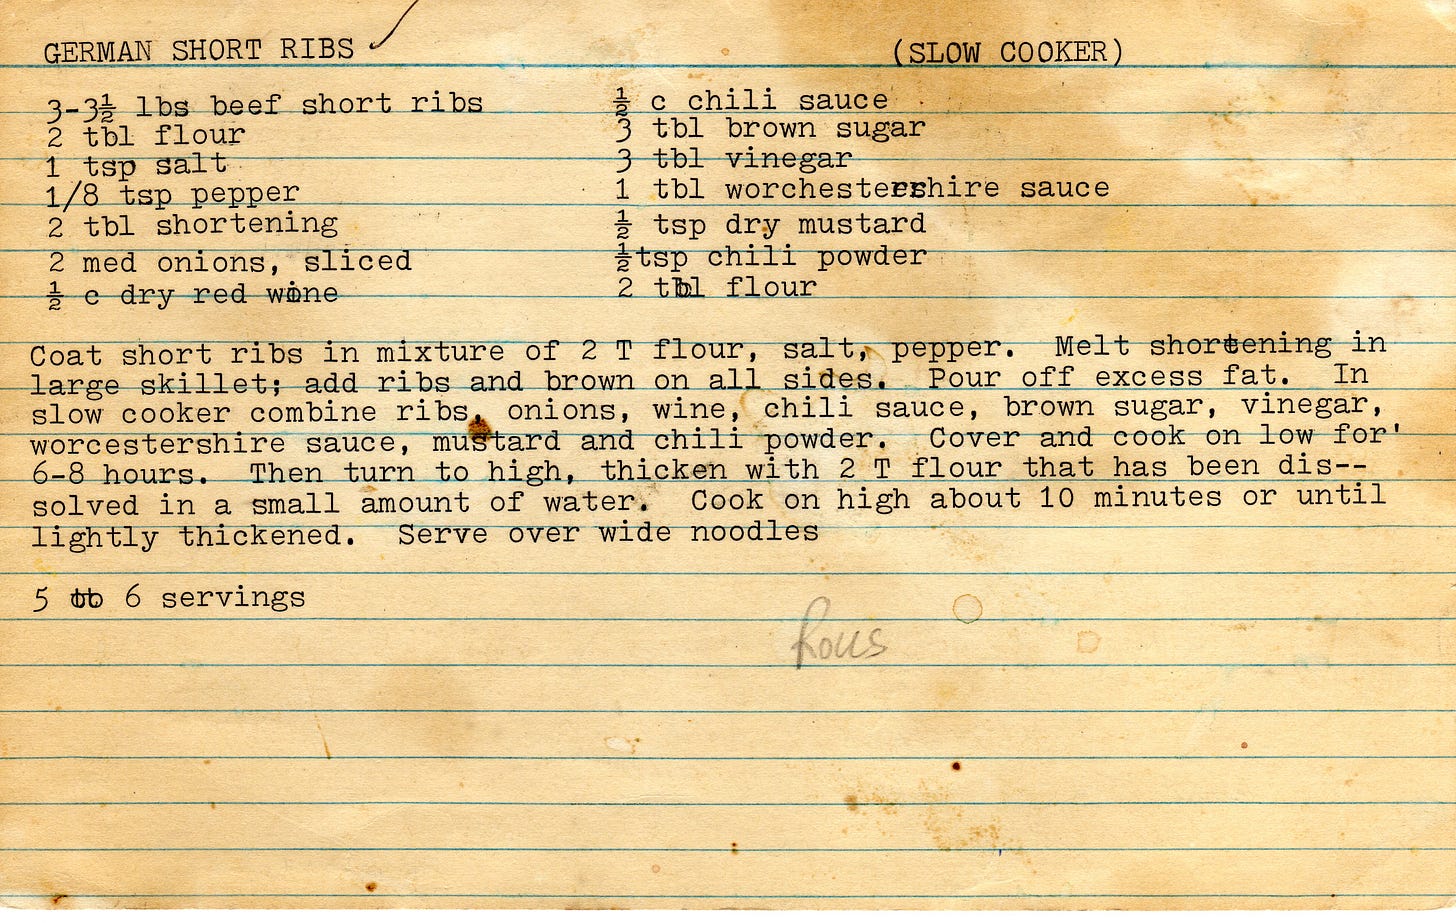 GERMAN SHORT RIBS (SLOW COOKER)
3-3½ lbs beef short ribs
2 tbl flour
1 tsp salt
1/8 tsp pepper
2 tbl shortening
2 med onions, sliced
½ c dry red wine
½ c chili sauce
3 tbl brown sugar
3 tbl vinegar
1 tbl worchestershire sauce
½ tsp dry mustard
½tsp chili powder
2 tbl flour
Coat short ribs in mixture of 2 T flour, salt, pepper. Melt shortening in
large skillet; add ribs and brown on all sides. Pour off excess fat. In
slow cooker combine ribs, onions, wine, chili sauce, brown sugar, vinegar,
worcestershire sauce, mustard and chili powder. Cover and cook on low for'
6-8 hours. Then turn to high, thicken with 2 T flour that has been dis--
solved in a small amount of water. Cook on high about 10 minutes or until
lightly thickened. Serve over wide noodles
5 to 6 servings